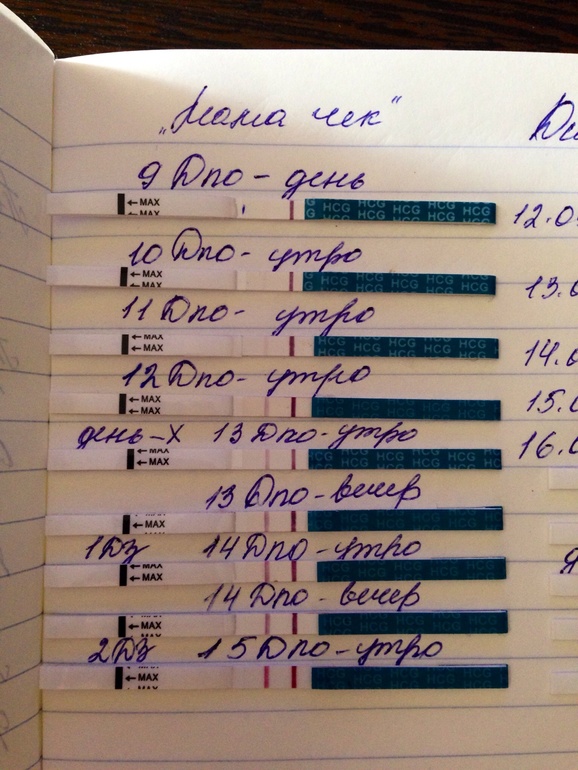 „Мама чек"
9 Дпо - день
← MAX
← MAX
HCG HCG HCG HCG
12.0
10 Дпо - утро
← MAX
← MAX
HCG HCG HCG HCG
13.0
11 Дпо - утро
← MAX
← MAX
HCG HCG HCG HCG
14.0
12 Дпо - утро
← MAX
← MAX
15.0
день-Х 13 Дпо - утро
← MAX
← MAX
HCG HCG HCG HCG
16.0
13 Дпо - вечер
← MAX
HCG HCG HCG HCG
1ДЗ 14 Дпо - утро
← MAX
← MAX
HCG HCG HCG HCG
14 Дпо - вечер
← MAX
HCG HCG HCG HCG
2ДЗ 15 Дпо - утро
← MAX